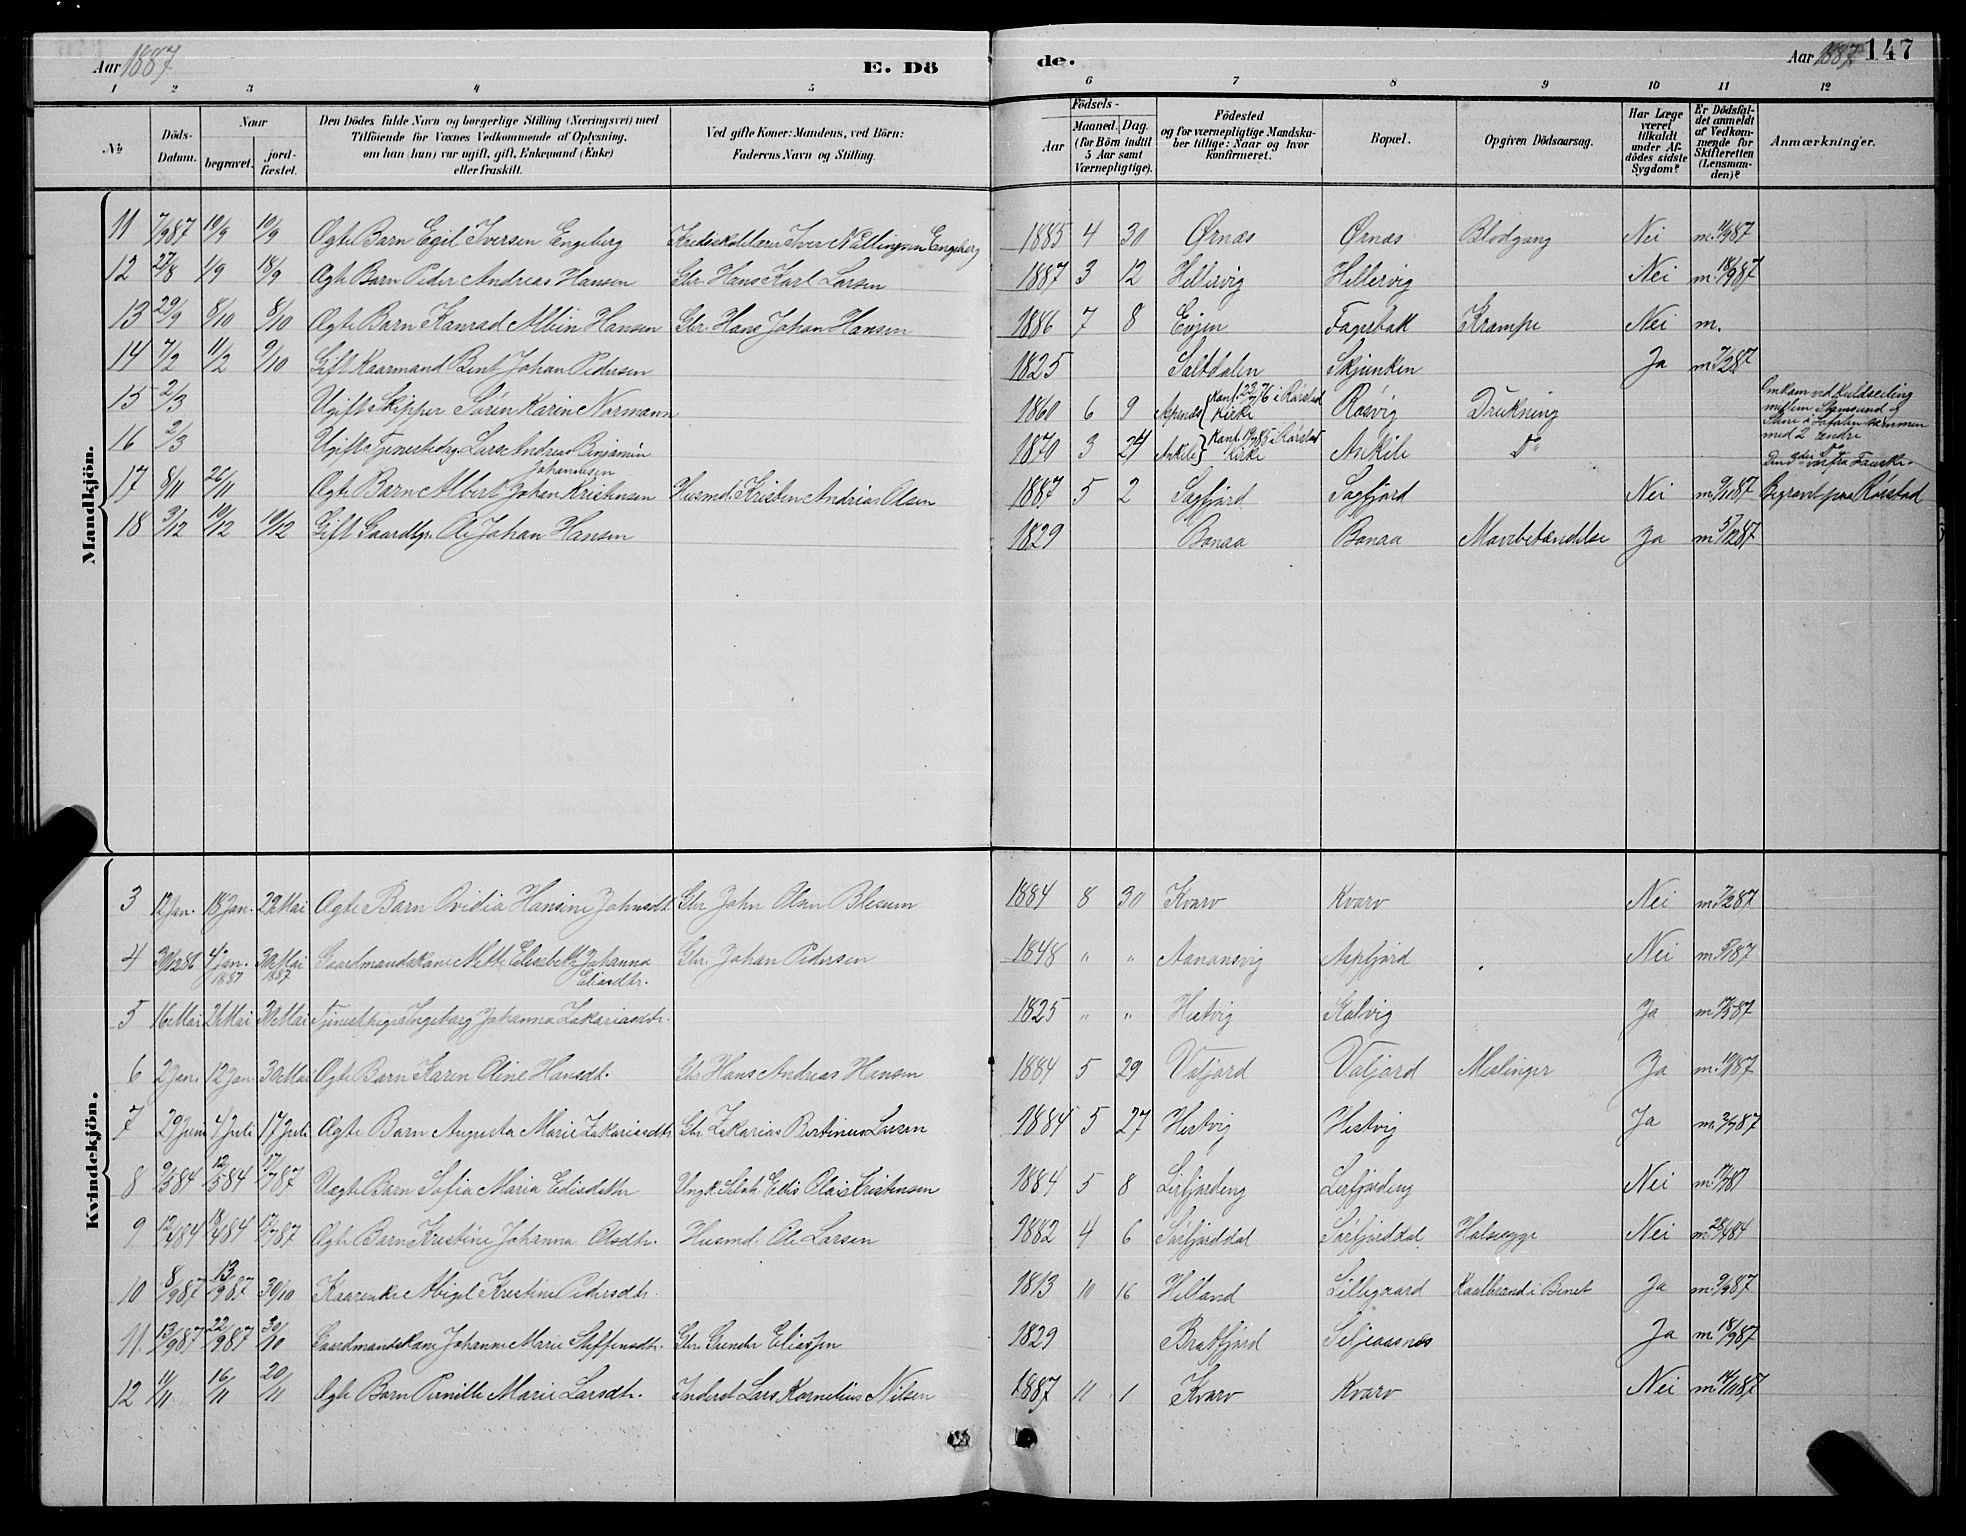 Aar 1887
E. Dö
de.
Aar 1887 147
1 2 3 4 5 6 7 8 9 10 11 12
No
Döds-Datum.
Naar
begravet.
jord-fæstet.
Den Dödes fulde Navn og borgerlige Stilling (Næringsvei) med
Tilföiende for Voxnes Vedkommende af Oplysning,
om han (hun) var ugift, gift, Enkemand (Enke)
eller fraskilt.
Ved gifte Koner: Mandens, ved Börn:
Faderens Navn og Stilling.
Födsels-
Aar
Maaned. Dag.
(for Börn indtil
5 Aar samt
Værnepligtige).
Födested
og for værnepligtige Mandska-
ber tillige: Naar og hvor
konfirmeret.
Bopæl.
Opgiven Dödsaarsag.
Har Læge
været
tilkaldt
under Af-
dödes sidste
Sygdom?
Er Dödsfal-
det anmeldt
af Vedkom-
mende for
Skifteretten
(Lensman-
den)?
Anmærkninger.
Mandkjön.
11 7/9 87 19/9 19/9 Ægte Barn Egil Iversen Engeberg Iver Engeberg 1885 4 30 Ørnæs Ørnæs Blodgang Nei
12 27/8 1/9 18/9 Ægte Barn Peder Andreas Hansen Gbr. Hans Karl Larsen 1887 3 12 Hellervig Hellervig Nei m. 18/9 87
13 29/9 8/10 8/10 Ægte Barn Konrad Albin Hansen Gbr. Hans Johan Hansen 1886 7 8 Evjen Fagerbak Krampe Nei m.
14 7/2 11/2 9/10 Gift Kaarmand Bent Johan Pedersen 1825 Saltdalen Skjunken Ja m. 7/2 87
15 2/3 Ugift Skipper Sören Karin Normann 1860 6 9 Konf. 76 i Rörstad Kirke Rösvig Drukning
Omkom ved Kuldseiling
mellem Stamsund og
med 2 andre
16 2/3 Ugift Lars Andreas Benjamin
Johannesen 1870 3 24 Ankile Konf. 85 i Rörstad Kirke Ankile Do
fra Fauske.
17 8/11 26/11 Ægte Barn Albert Johan Kristensen Husmd. Kristen Andrias Olsen 1887 5 2 Sagfjord Sagfjord Nei Begravet paa Rörstad
18 3/12 19/12 19/12 Gift Gaardbr. Ole Johan Hansen 1829 Bonaa Bonaa Mavebetændelse Ja m. 5/12 87
Kvindekjön.
3 12 Jan. 18 Jan. 29 Mai Ægte Barn Ovidia Hansine Johnsdt. Gbr. John Olsen 1884 8 30 Kvarv Kvarv Nei m. 7/2 87
4 30/12 86 4 Jan. 1887 30 Mai 1887 Gaardmandskone Mette Elisabeth Johanna
Eliasdtr. Gbr. Johan Pedersen 1848 " " Aanansvig Aspfjord Nei
5 16 Mai 24 Mai 30 Mai Tjenestpige Ingeborg Johanna Zakariasdtr. 1825 " " Hestvig Kalvig Ja
6 2 Jan. 12 Jan. 30 Mai Ægte Barn Karen Oline Hansdt. Gbr. Hans Andreas Hansen 1884 5 29 Vatjord Vatjord Meslinger Ja
7 29 Juni 4 Juli 17 Juli Ægte Barn Augusta Marie Zakariasdtr. Gbr. Zakarias Bertinus Larsen 1884 5 27 Hestvig Hestvig Ja
8 9/5 84 12/5 84 17/7 87 Uægte Barn Sofia Maria Edisdatter Ungk. Edis Olai Kristensen 1884 5 8 Lerfjording Lerfjording Nei
9 12/4 84 18/4 84 17/7 87 Ægte Barn Kristine Johanna Olsdtr. Husmd. Ole Larsen 1882 4 6 Sörfjorddal Sörfjorddal Halssyge Nei m. 28/4 84
10 8/9 87 13/9 87 30/10 Kaarenke Abigel Kristine Pedersdtr. 1813 10 16 Helland Lillegaard Kaalbrand i Benet Ja m. 9/9 87
11. 13/9 87 22/9 87 30/10 Gaardmandskone Johanne Marie Steffensdtr. Gbr. Gunder Eliassen 1829 Bratfjord Seljeaasnæs Ja m. 18/9 87
12 11/11 16/11 20/11 Ægte Barn Pernille Marie Larsdtr. Inderst Lars Kornelius Nilsen 1887 11 1 Kvarv Kvarv Nei m. 14/11 87